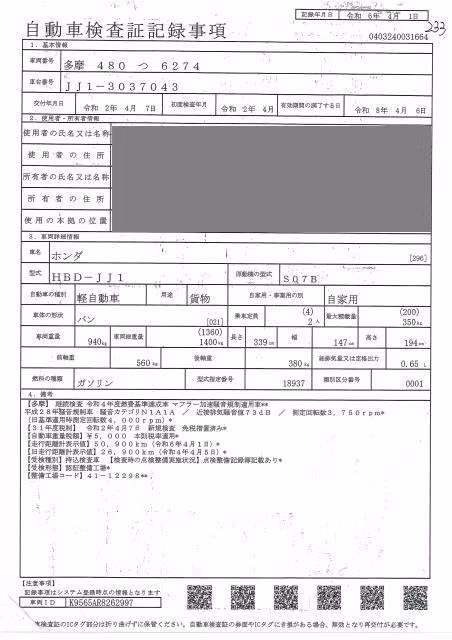 記録年月日 令和 6年 4月 1日
233
自動車検査証記録事項
0403240031664
1. 基本情報
車両番号 多摩 480 つ 6274
車台番号 JJ1-3037043
交付年月日 令和 2年 4月 7日 初度検査年月 令和 2年 4月 有効期間の満了する日 令和 8年 4月 6日
2. 使用者・所有者情報
使用者の氏名又は名称
使用者の住所
所有者の氏名又は名称
所有者の住所
使用の本拠の位置
3. 車両詳細情報
車名 ホンダ [296]
型式 HBD-JJ1 原動機の型式 S07B
自動車の種別 軽自動車 用途 貨物 自家用・事業用の別 自家用
車体の形状 バン [021] 乗車定員 (4) 2人 最大積載量 (200) 350kg
車両重量 940kg 車両総重量 (1360) 1400kg 長さ 339cm 幅 147cm 高さ 194cm
前軸重 560kg 後軸重 380kg 総排気量又は定格出力 0.65 L
燃料の種類 ガソリン 型式指定番号 18937 類別区分番号 0001
4. 備考
【多摩】 継続検査 令和4年度燃費基準達成車 マフラー加速騒音規制適用車**
平成28年騒音規制車 騒音カテゴリN1A1A / 近接排気騒音値73dB / 測定回転数3,750rpm*
(旧基準適用時測定回転数4,000rpm)*
【31年度税制】 令和2年4月7日 新規検査 免税措置済み*
【自動車重量税額】 ¥5,000 本則税率適用*
【走行距離計表示値】 50,900km (令和6年4月1日)*
【旧走行距離計表示値】 26,900km (令和4年4月5日)*
【受検種別】 持込検査車 【検査時の点検整備実施状況】 点検整備記録簿記載あり*
【受検形態】 認証整備工場*
【整備工場コード】 41-12298**.
【注意事項】
記録事項はシステム登録時点の情報となります
車両ID K9565AR8262997
車検査証のICタグ部分は折り曲げずに保管ください。自動車検査証の券面やICタグにき損がある場合、無効となり再交付が必要です。